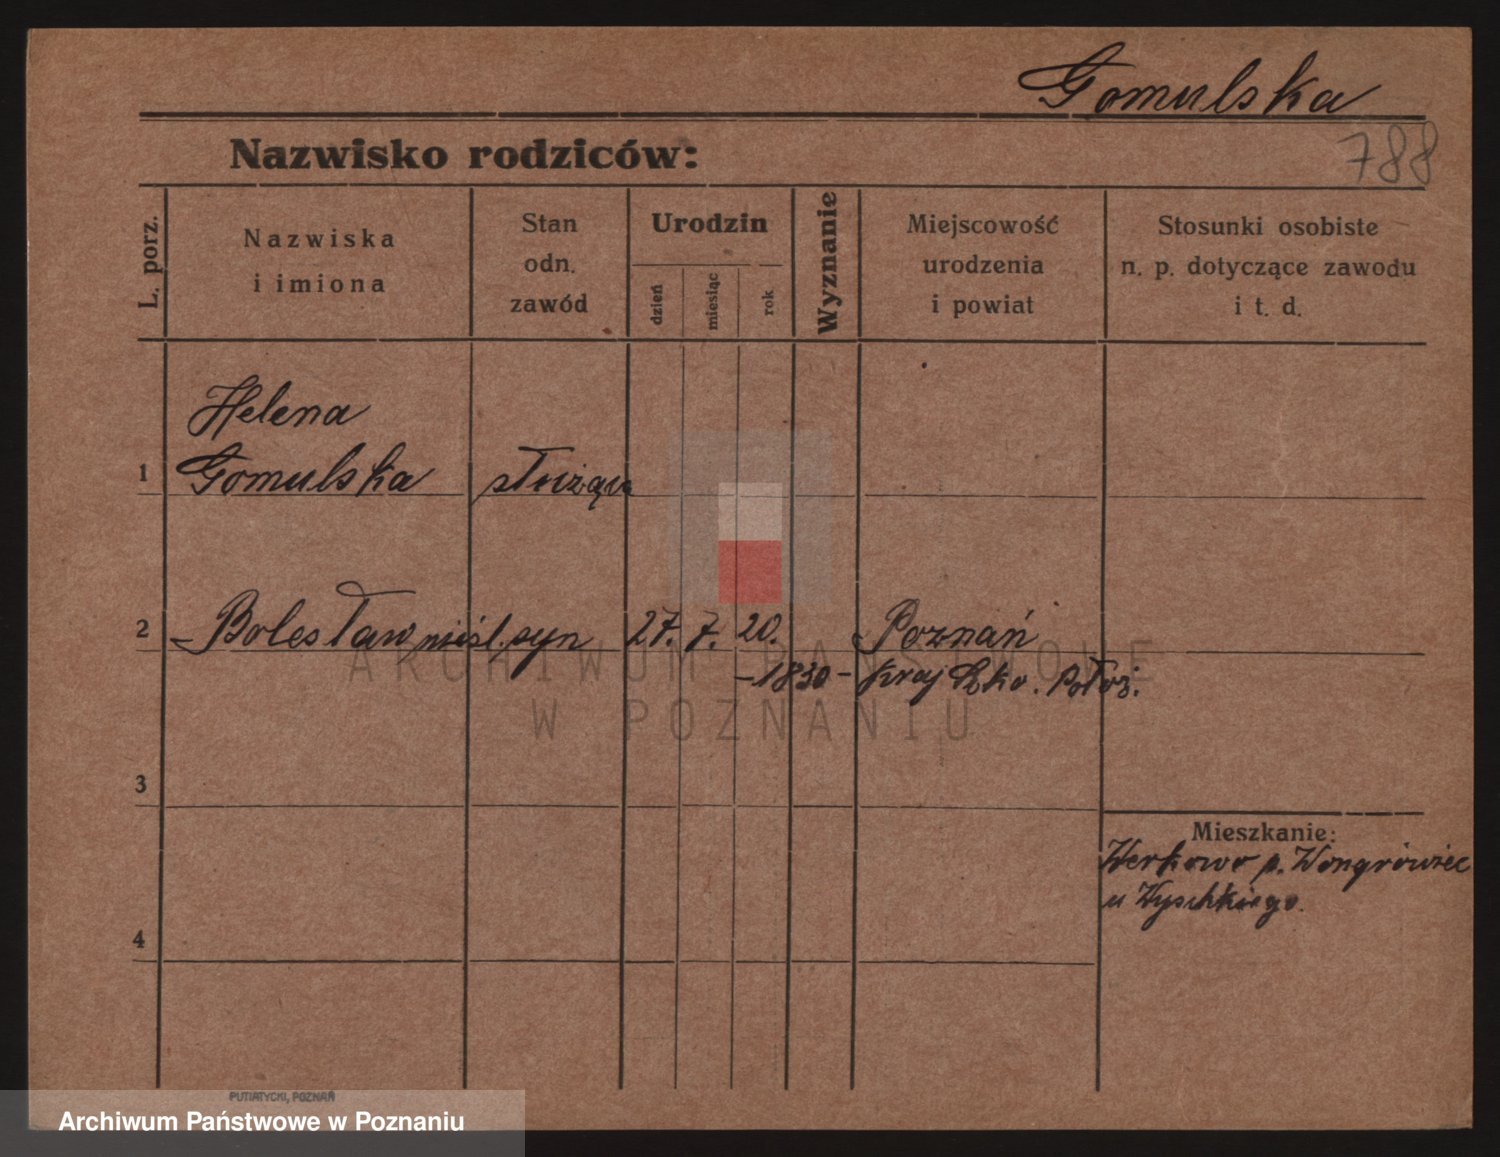 Gomulska
788
Nazwisko rodziców:
L. porz.
Nazwiska
i imiona
Stan
odn.
zawód
Urodzin
dzień
miesiąc
rok
Wyznanie
Miejscowość
urodzenia
i powiat
Stosunki osobiste
n. p. dotyczące zawodu
i t. d.
Helena
1 Gomulska służąca
2 Bolesław nieśl. syn 27. 7. 20. Poznań
-1830- Kraj Szko. Położ.
3
Mieszkanie:
Werkowo p. Wongrówiec
u Wyschkiego.
4
ARCHIWUM PAŃSTWOWE
W POZNANIU
PUTIATYCKI, POZNAŃ
Archiwum Państwowe w Poznaniu